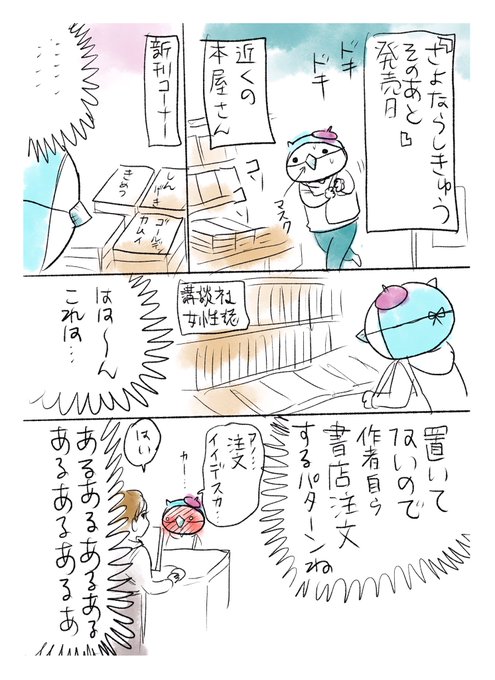 『さよならしきゅう
そのあと』
発売日
ドキ
ドキ
マスク
コソ
コソ
近くの
本屋さん
新刊コーナー
しん
げき
きめつ
ゴールデン
カムイ
……
……
講談社
女性誌
はは〜ん
これは…
置いて
ないので
作者自ら
書店注文
するパターンね
アノ…
注文
イイデスカ…
カー…
はい
あるあるあるある
あるあるあるあ